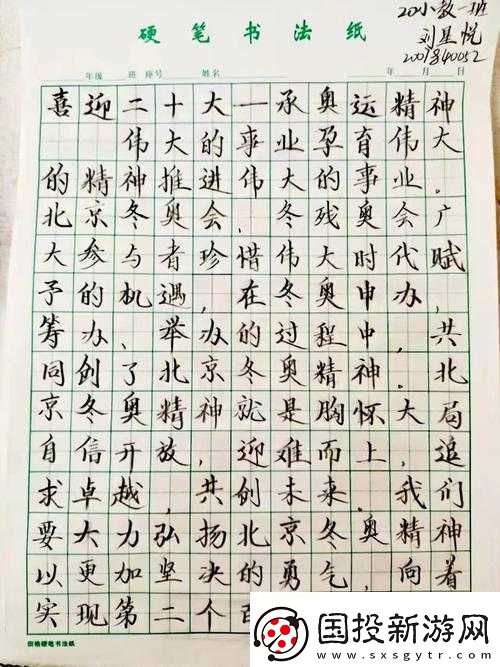 20小教一班
刘星悦
2007840052
硬笔书法纸
年级 班 座号 姓名 年 月 日
喜迎二十大一承奥运精神
伟大的事业孕育伟大
的精神推进伟大的事业。
北京冬奥会、冬残奥会广
大参与者珍惜伟大时代赋
予的机遇,在冬奥申办,
筹办、举办的过程中,共
同创了北京冬奥精神。北
京冬奥精神就是胸怀大局
自信开放,迎难而上,追
求卓越,共创未来。我们
要大力弘扬北京冬奥精神
以更加坚决的勇气,向着
实现第二个百
田格硬笔书法纸
国投新游网
www.sxsgytr.com